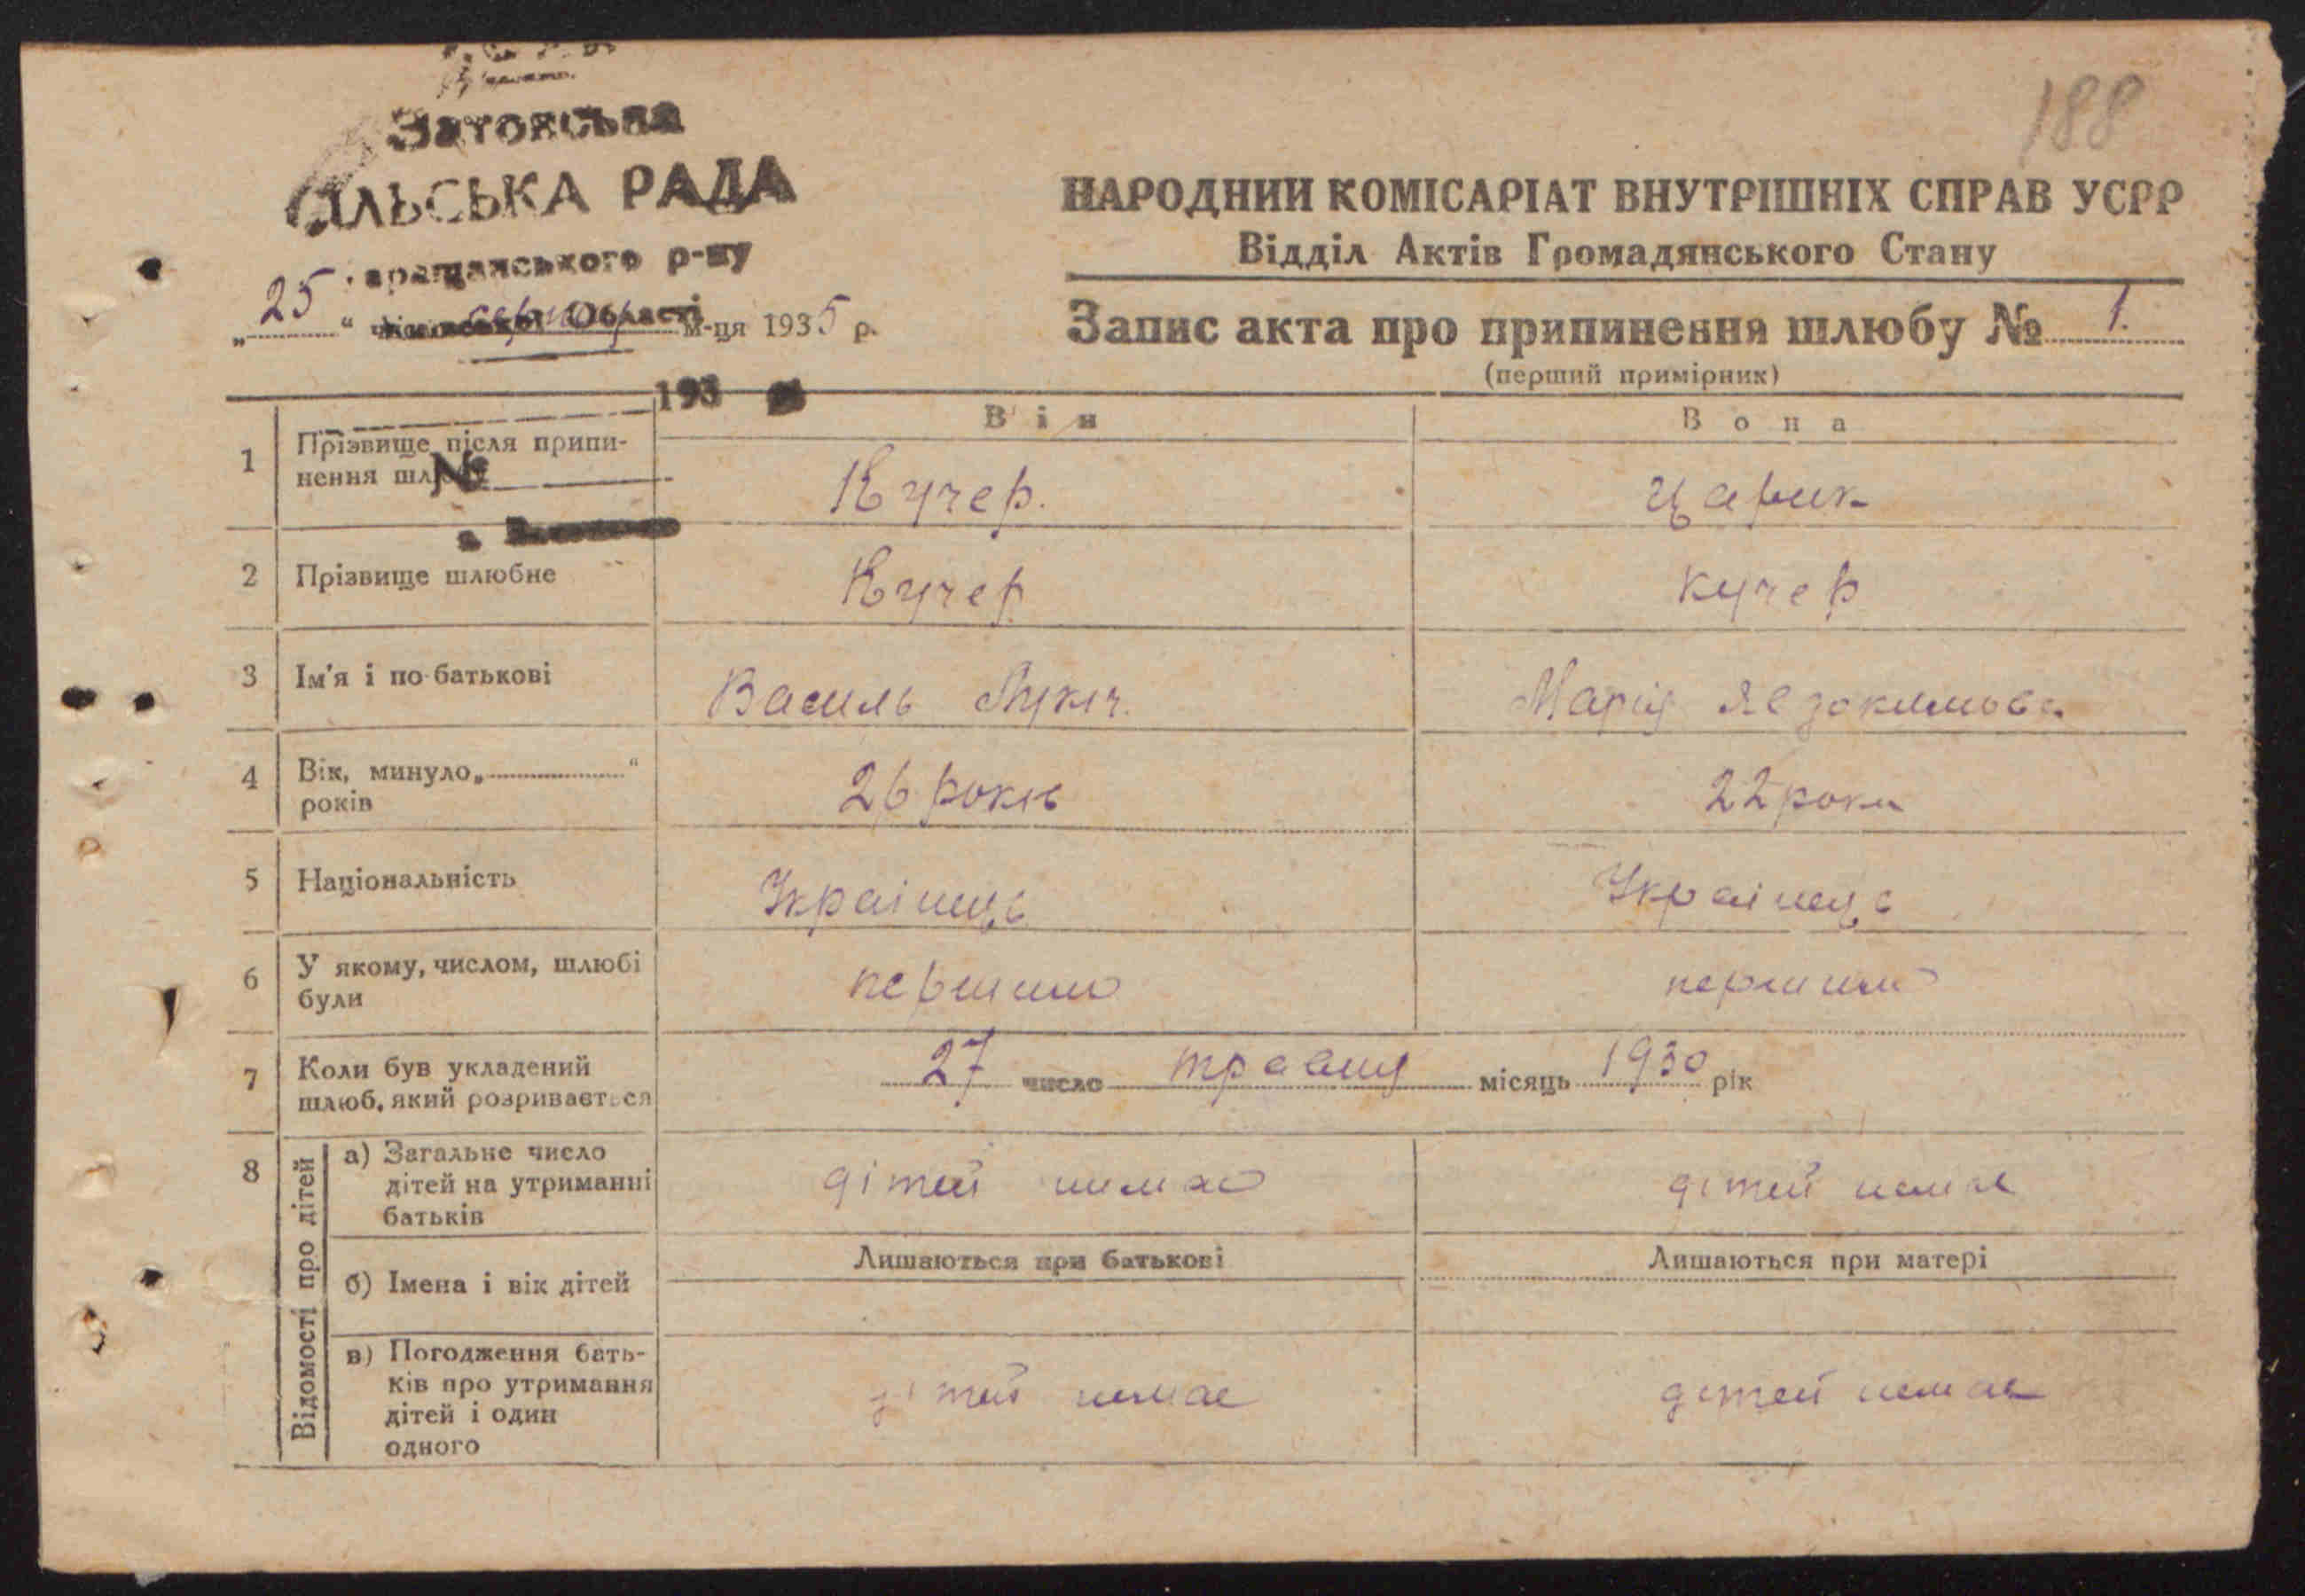 188
Затонська
СІЛЬСЬКА РАДА
Таращанського р-ну
Київської Області
„25“ серпня м-ця 1935 р.
193
№
НАРОДНИЙ КОМІСАРІАТ ВНУТРІШНІХ СПРАВ УСРР
Відділ Актів Громадянського Стану
Запис акта про припинення шлюбу № 1.
(перший примірник)
Він Вона
1 Прізвище після припи-
нення шлюбу Кучер. Царик
2 Прізвище шлюбне Кучер Кучер
3 Ім'я і по-батькові Василь Лукіч. Марія Явдокимова
4 Вік, минуло „ “
років 26 років 22 роки
5 Національність Українець Українець
6 У якому, числом, шлюбі
були першим першим
7 Коли був укладений
шлюб, який розривається 27 число травня місяць 1930 рік
8 Відомості про дітей
а) Загальне число
дітей на утриманні
батьків дітей немає дітей немає
Лишаються при батькові Лишаються при матері
б) Імена і вік дітей
в) Погодження бать-
ків про утримання
дітей і один
одного дітей немає дітей немає